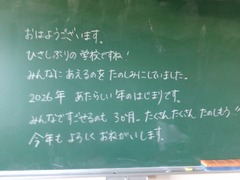 おはようございます。
ひさしぶりの学校ですね!
みんなにあえるのを たのしみにしていました。
2026年 あたらしい年のはじまりです。
みんなですごせるのも 3か月。たくさんたくさん たのしもう!!
今年も よろしく おねがいします。